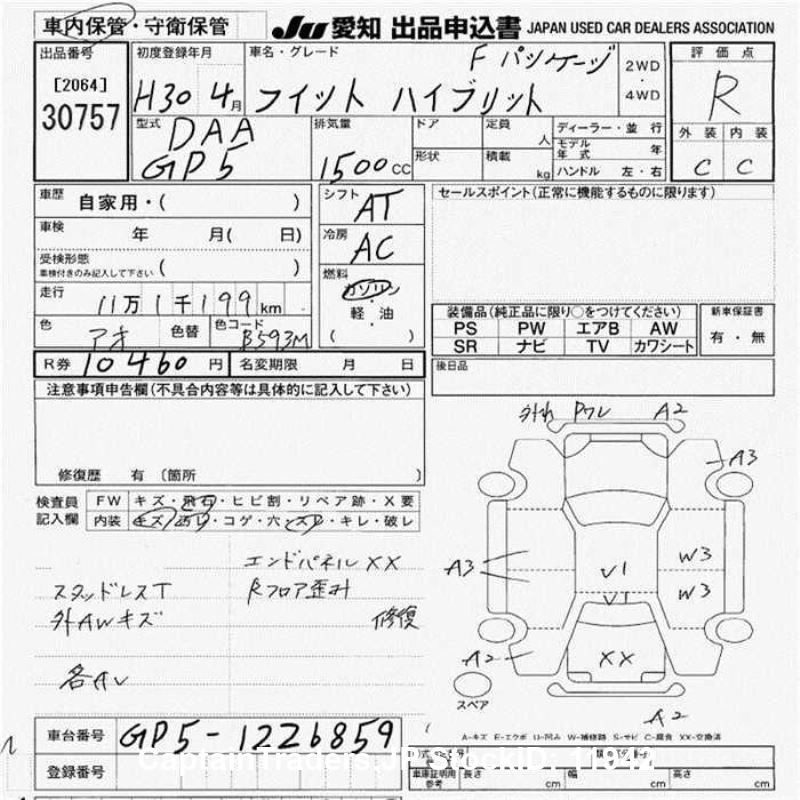 車内保管・守衛保管
JU 愛知 出品申込書 JAPAN USED CAR DEALERS ASSOCIATION
出品番号
[2064]
30757
初度登録年月
H30 4月
車名・グレード
F パッケージ
フィット ハイブリット
2WD
・
4WD
評価点
R
外装 内装
C C
型式
DAA
GP5
排気量
1500cc
ドア
形状
定員 人
積載 kg
ディーラー・並行
モデル年式 年
ハンドル 左・右
車歴 自家用・( )
車検 年 月( 日)
受検形態
車検付きのみ記入して下さい ( )
走行 11万1千199km
色 アオ 色替 色コード B593M
シフト AT
冷房 AC
燃料
ガソリン
軽油
・
( )
セールスポイント(正常に機能するものに限ります)
装備品(純正品に限り○をつけてください)
PS PW エアB AW
SR ナビ TV カワシート
新車保証書
有・無
R券 10460円 名変期限 月 日
後日品
注意事項申告欄(不具合内容等は具体的に記入して下さい)
修復歴 有 〔箇所 〕
検査員
記入欄
FW キズ・飛石・ヒビ割・リペア跡・X要
内装 キズ・凹・コゲ・穴・スレ・キレ・破レ
エンドパネルXX
スタッドレスT Rフロア歪み
外AWキズ 修復
各AV
A2
A3
A3
V1
V1
W3
W3
A2
XX
A2
スペア
A-キズ E-エクボ U-凹み W-補修跡 S-サビ C-腐食 XX-交換済
車台番号 GP5-1226859
登録番号
車庫証明用
参考
長さ cm 幅 cm 高さ cm
CaptainTraders.JP StockID: 11942